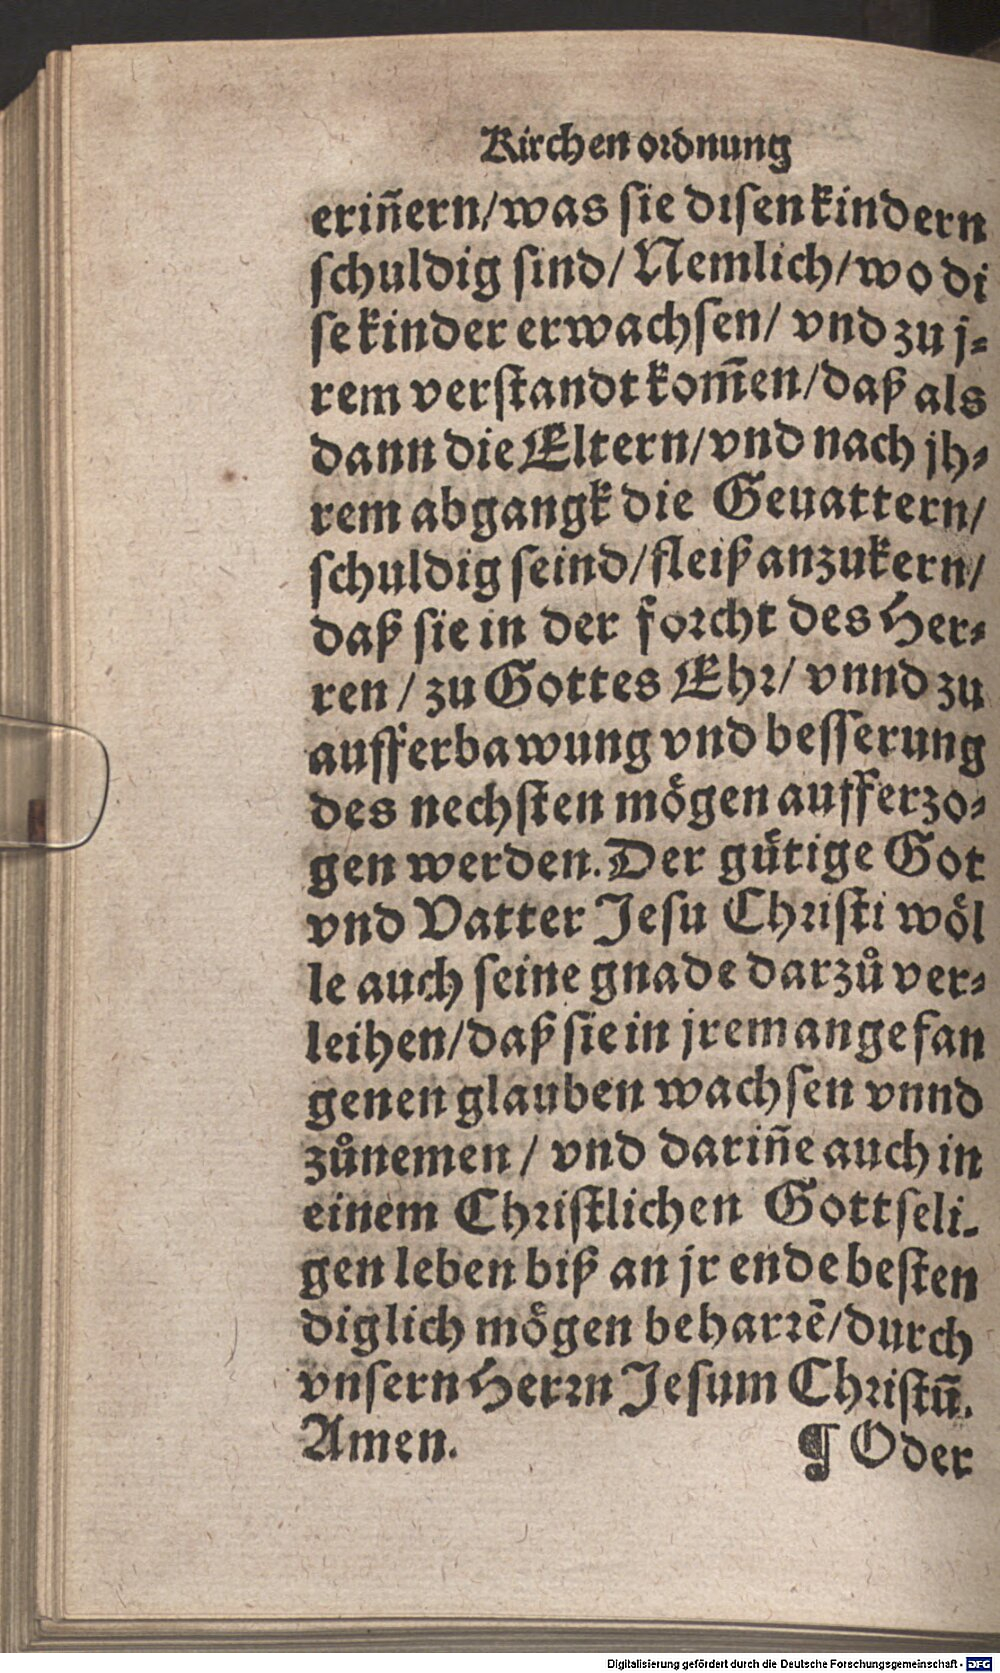 Kirchen ordnung
eriñern/was sie disen kindern
schuldig sind/ Nemlich/wo di
se kinder erwachsen/ vnd zu j⸗
rem verstandt kom̃en/daß als
dann die Eltern/vnd nach jh⸗
rem abgangk die Geuattern/
schuldig seind/fleiß anzukern/
daß sie in der forcht des Her⸗
ren / zu Gottes Ehr/ vnnd zu
aufferbawung vnd besserung
des nechsten mögen aufferzo⸗
gen werden. Der gütige Got
vnd Vatter Jesu Christi wöl
le auch seine gnade darzů ver⸗
leihen/daß sie in jrem angefan
genen glauben wachsen vnnd
zůnemen / vnd dariñe auch in
einem Christlichen Gottseli⸗
gen leben biß an jr ende besten
diglich mögen beharrē/durch
vnsern Herrn Jesum Christū.
Amen. ¶ Oder
Digitalisierung gefördert durch die Deutsche Forschungsgemeinschaft - DFG